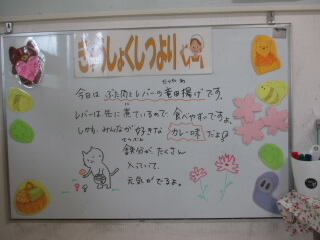 きゅうしょくしつより
今日は ぶた肉とレバーの竜田揚げです。
たつたあ
レバーは先に煮ているので、食べやすいですよ。
しかも、みんなが好きな カレー味 だよ
てつぶん
鉄分が たくさん
入っていて、
元気がでるよ。